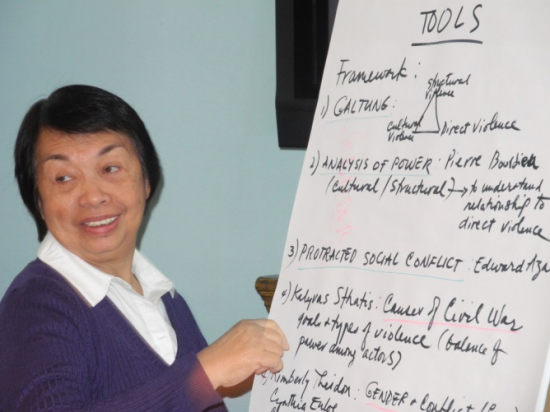 TOOLS
Framework:
Structural
violence
1) GALTUNG:
Cultural
violence
Direct violence
2) ANALYSIS OF POWER: Pierre
(Cultural/Structural) → to understand
relationship to
direct violence
3) PROTRACTED SOCIAL CONFLICT: Edward Aza
4) Kalyvas Stratis: Causes of Civil War
goals + types of violence (balance of
power among actors)
Kimberly Theidon: GENDER + Conflict
Cynthia Enloe